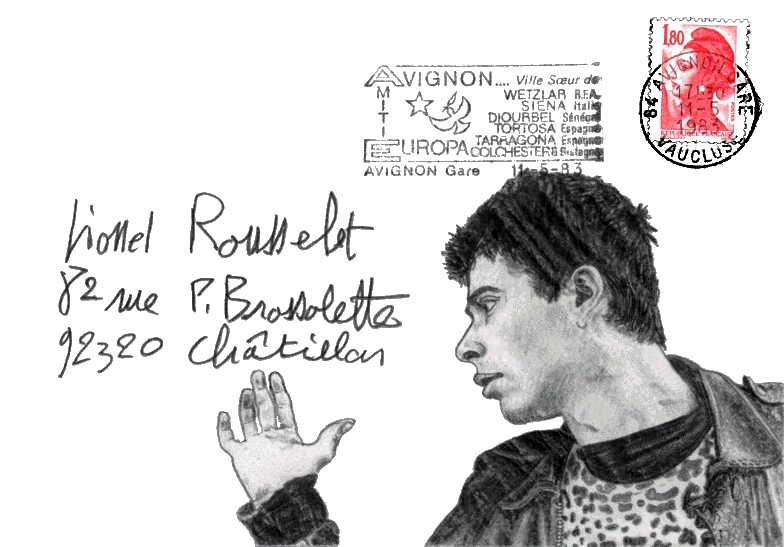 AVIGNON.... Ville Sœur de
AMITIE
WETZLAR R.F.A.
SIENA Italie
DIOURBEL Sénégal
TORTOSA Espagne
TARRAGONA Espagne
EUROPA COLCHESTER G Bretagne
AVIGNON Gare 11-5-83
1,80
POSTES
REPUBLIQUE FRANÇAISE
84 AVIGNON GARE
17H30
11-5
1983
VAUCLUSE
Lionel Rousselet
82 rue P. Brossolette
92320 Châtillon